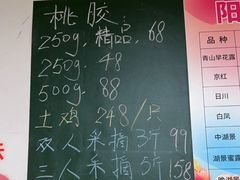 桃胶
250g. 精品. 68
250g. 48
500g. 88
土鸡 248/只
双人采摘3斤99
三人采摘5斤158
阳
品种
青山早花露
京红
日川
白凤
中湖景
湖景蜜露